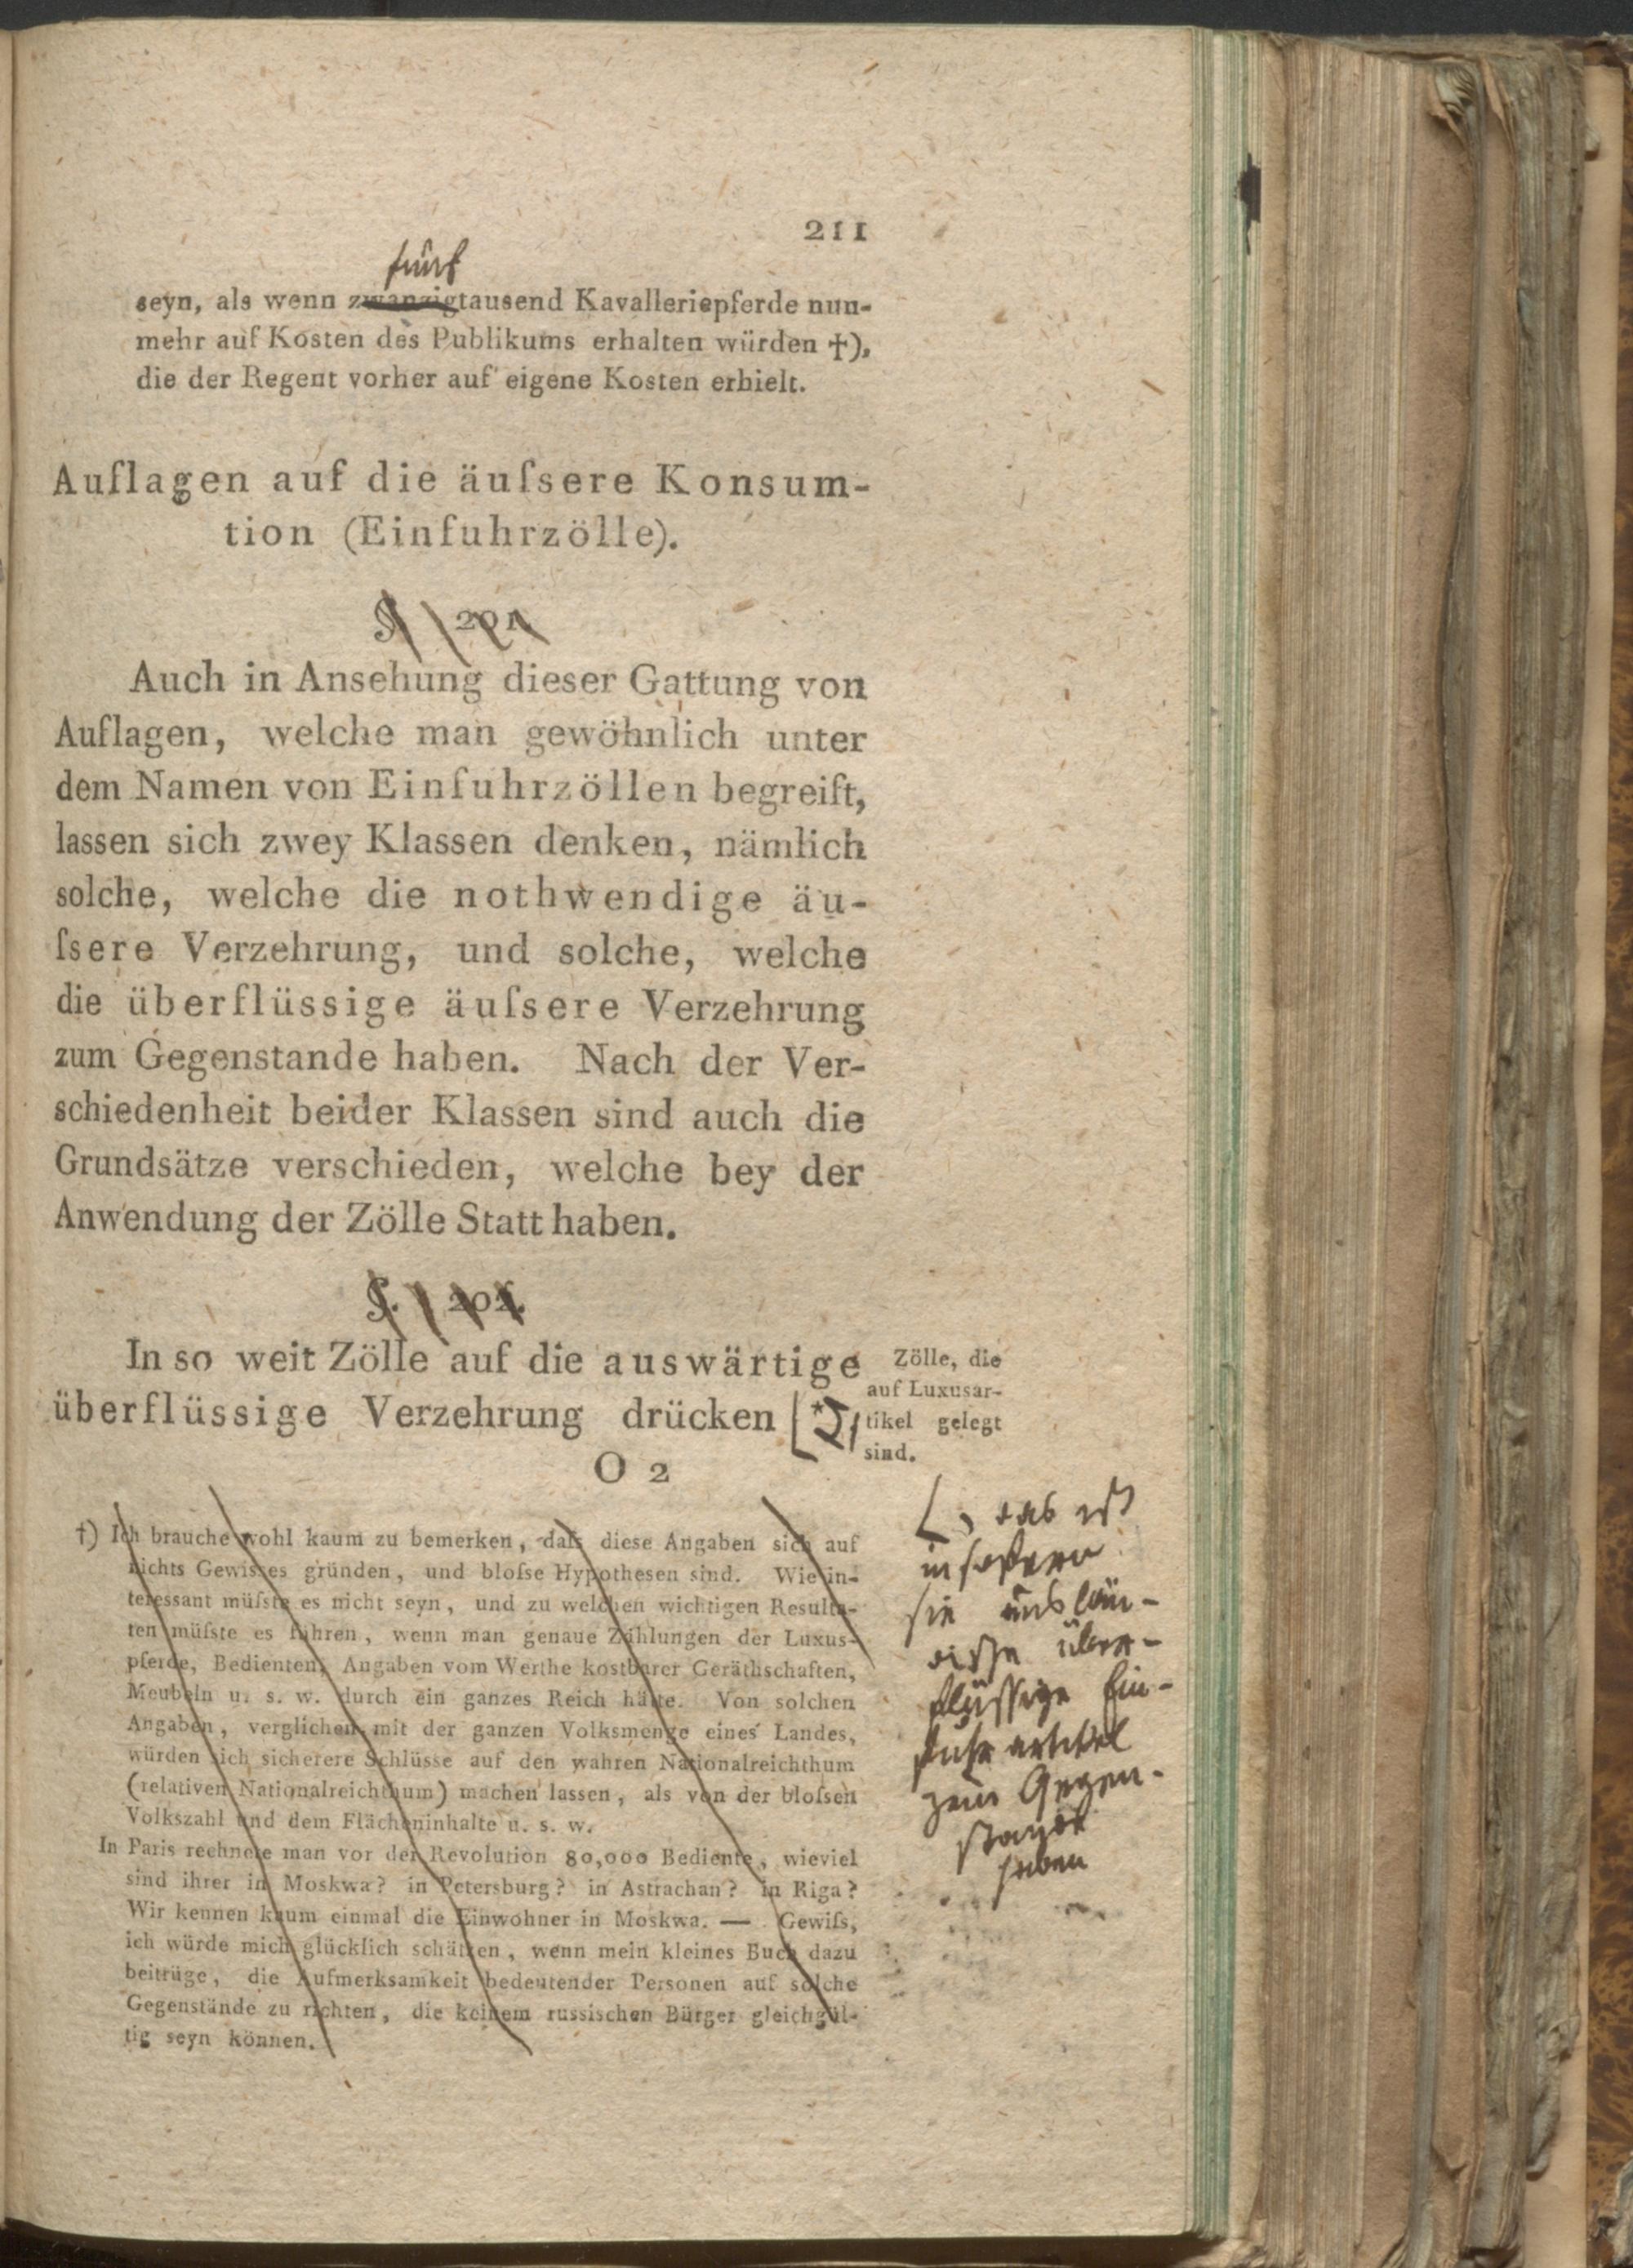 211
fünf
seyn, als wenn zwanzigtausend Kavalleriepferde nun-
mehr auf Kosten des Publikums erhalten würden †),
die der Regent vorher auf eigene Kosten erhielt.
Auflagen auf die äuſsere Konsum-
tion (Einfuhrzölle).
§. 201.
Auch in Ansehung dieser Gattung von
Auflagen, welche man gewöhnlich unter
dem Namen von Einfuhrzöllen begreift,
lassen sich zwey Klassen denken, nämlich
solche, welche die nothwendige äu-
ſsere Verzehrung, und solche, welche
die überflüssige äuſsere Verzehrung
zum Gegenstande haben. Nach der Ver-
schiedenheit beider Klassen sind auch die
Grundsätze verschieden, welche bey der
Anwendung der Zölle Statt haben.
§. 202.
In so weit Zölle auf die auswärtige
überflüssige Verzehrung drücken
Zölle, die
auf Luxusar-
tikel gelegt
sind.
O 2
, das ist
insofern
sie auslän-
dische über-
flüssige Ein-
fuhrartikel
zum Gegen-
stande
haben
†) Ich brauche wohl kaum zu bemerken, daſs diese Angaben sich auf
nichts Gewisses gründen, und bloſse Hypothesen sind. Wie in-
teressant müſste es nicht seyn, und zu welchen wichtigen Resulta-
ten müſste es führen, wenn man genaue Zählungen der Luxus-
pferde, Bedienten, Angaben vom Werthe kostbarer Geräthschaften,
Meubeln u. s. w. durch ein ganzes Reich hätte. Von solchen
Angaben, verglichen mit der ganzen Volksmenge eines Landes,
würden sich sicherere Schlüsse auf den wahren Nationalreichthum
(relativen Nationalreichthum) machen lassen, als von der bloſsen
Volkszahl und dem Flächeninhalte u. s. w.
In Paris rechnete man vor der Revolution 80,000 Bediente, wieviel
sind ihrer in Moskwa? in Petersburg? in Astrachan? in Riga?
Wir kennen kaum einmal die Einwohner in Moskwa. — Gewiſs,
ich würde mich glücklich schätzen, wenn mein kleines Buch dazu
beitrüge, die Aufmerksamkeit bedeutender Personen auf solche
Gegenstände zu richten, die keinem russischen Bürger gleichgül-
tig seyn können.